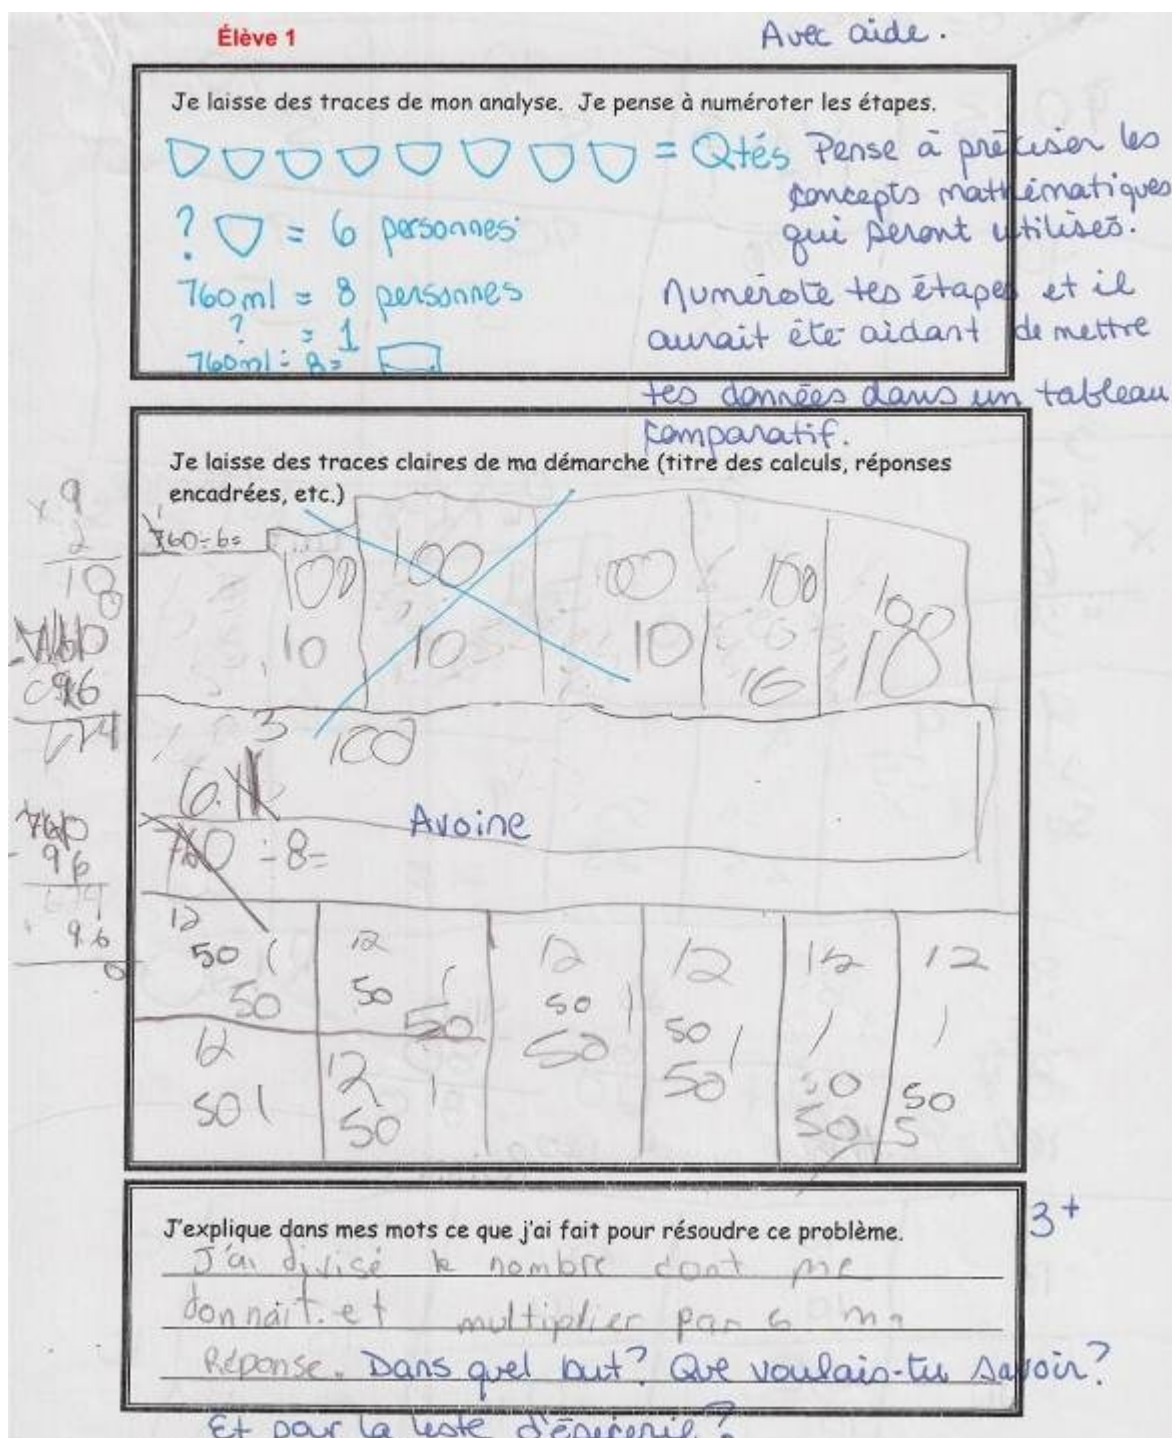 Élève 1
Avec aide.
Je laisse des traces de mon analyse. Je pense à numéroter les étapes.
= Qtés
Pense à préciser les
concepts mathématiques
qui seront utilisés.
? = 6 personnes
760ml = 8 personnes
? = 1
760ml ÷ 8 =
Numérote tes étapes et il
aurait été aidant de mettre
tes données dans un tableau
comparatif.
Je laisse des traces claires de ma démarche (titre des calculs, réponses
encadrées, etc.)
x 9
2
18
760÷6=
100 100 100 100 100
10 10 10 16 18
3 100
6.
Avoine
760 ÷ 8=
760
- 96
96
0
12 12 12 12 12 12
50 1 50 1 50 1 50 1 1 1
50 50 50 50 50 50
50 5
12 12
50 1 1
50
J'explique dans mes mots ce que j'ai fait pour résoudre ce problème.
3+
J'ai divisé le nombre dont me
donnait. et multiplier par 6 ma
Réponse. Dans quel but? Que voulais-tu savoir?
Et pour la liste d'épicerie?